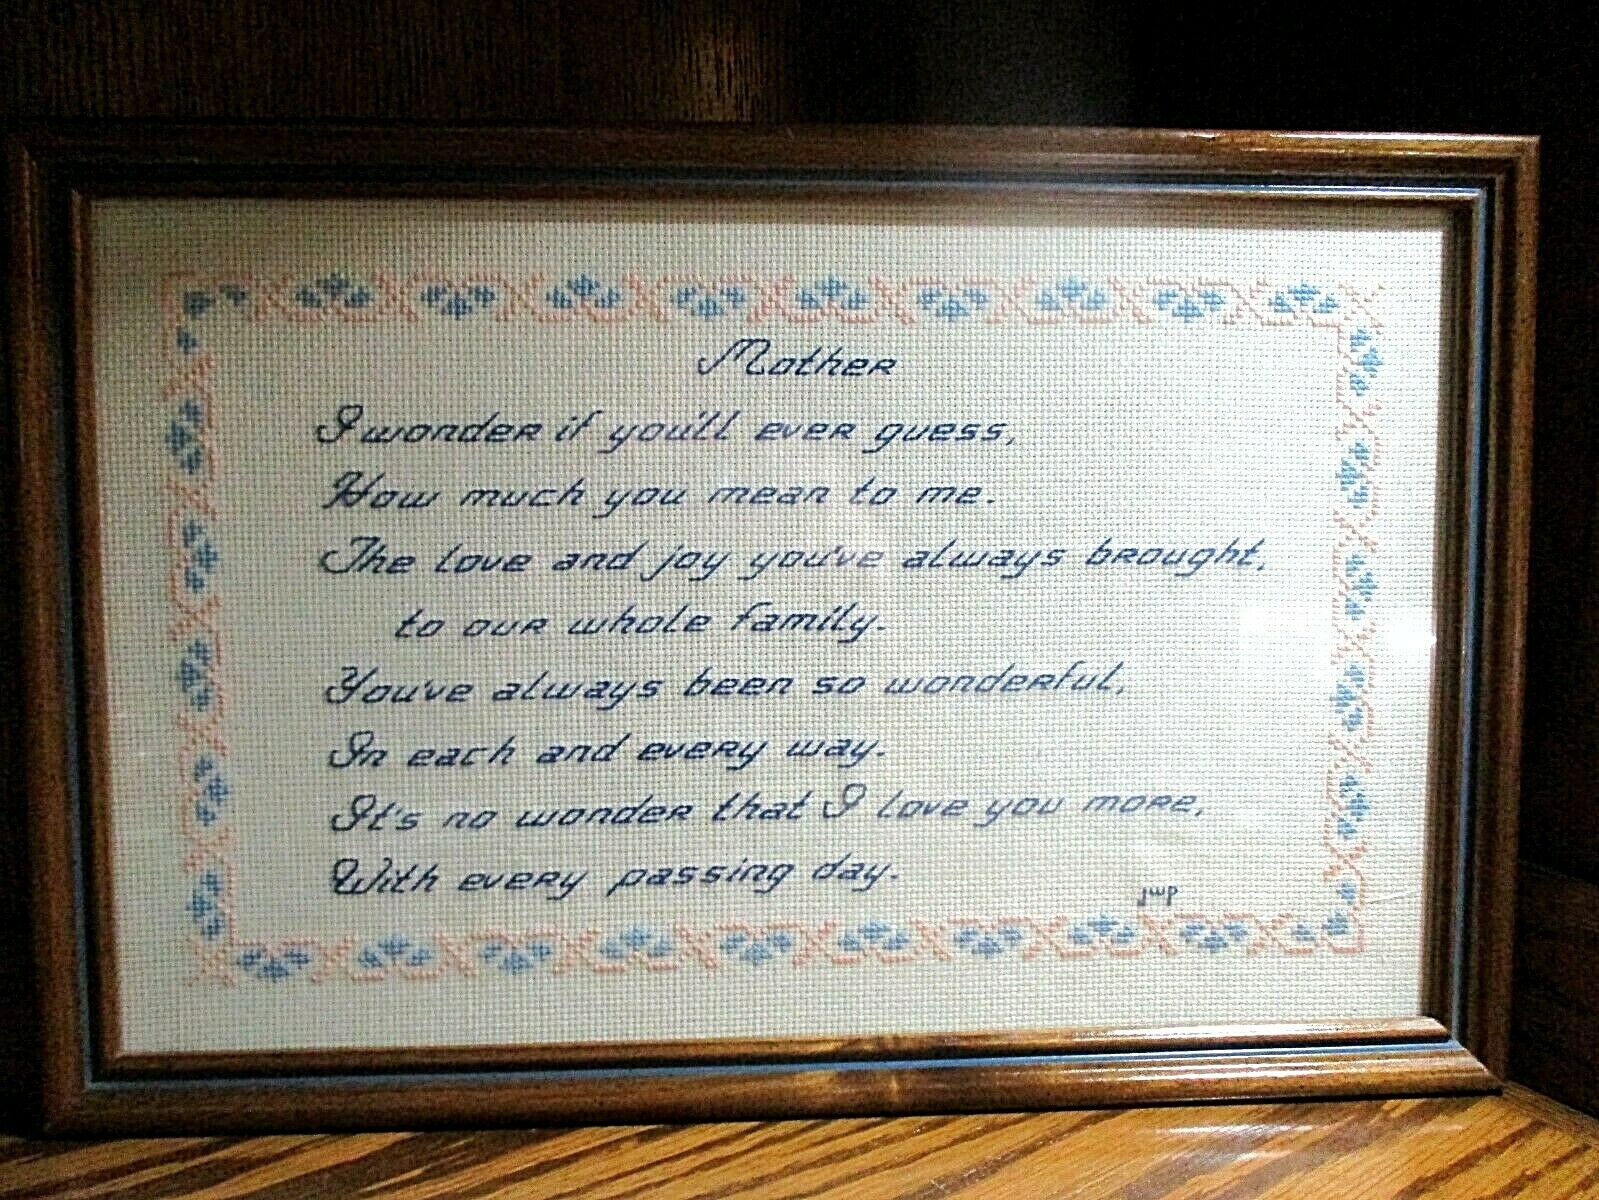 Mother
I wonder if you'll ever guess,
How much you mean to me.
The love and joy you've always brought,
to our whole family.
You've always been so wonderful,
In each and every way.
It's no wonder that I love you more,
With every passing day.
jwp